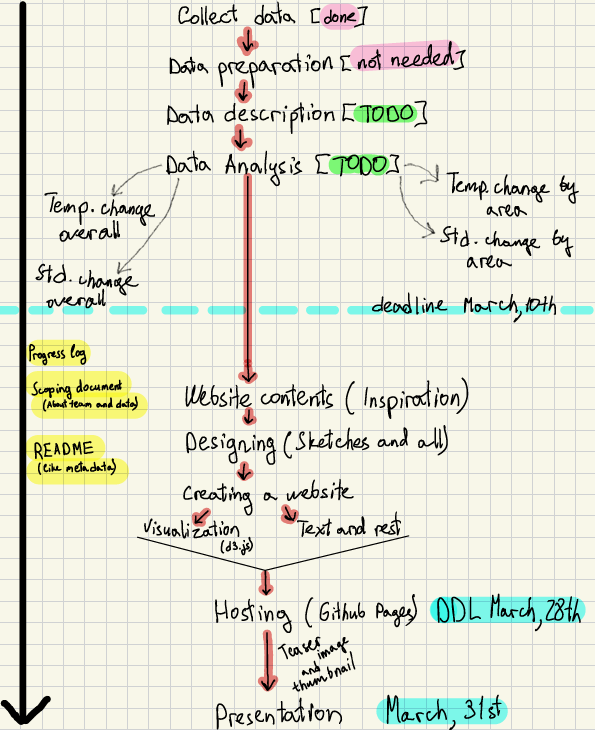 Collect data [done]
Data preparation [not needed]
Data description [TODO]
Data Analysis [TODO]
Temp. change
overall
Std. change
overall
Temp. change by
area
Std. change by
area
deadline March, 10th
Progress log
Scoping document
(About team and data)
README
(like metadata)
Website contents (Inspiration)
Designing (Sketches and all)
Creating a website
Visualization
(d3.js)
Text and rest
Hosting (Github Pages) DDL March, 28th
Teaser image
and
thumbnail
Presentation March, 31st